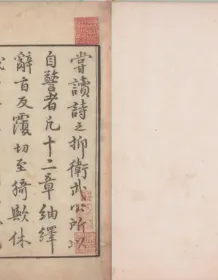 嘗讀詩之抑衛武公所以
自警者凡十二章紬繹
辭旨反覆切至猗歟休